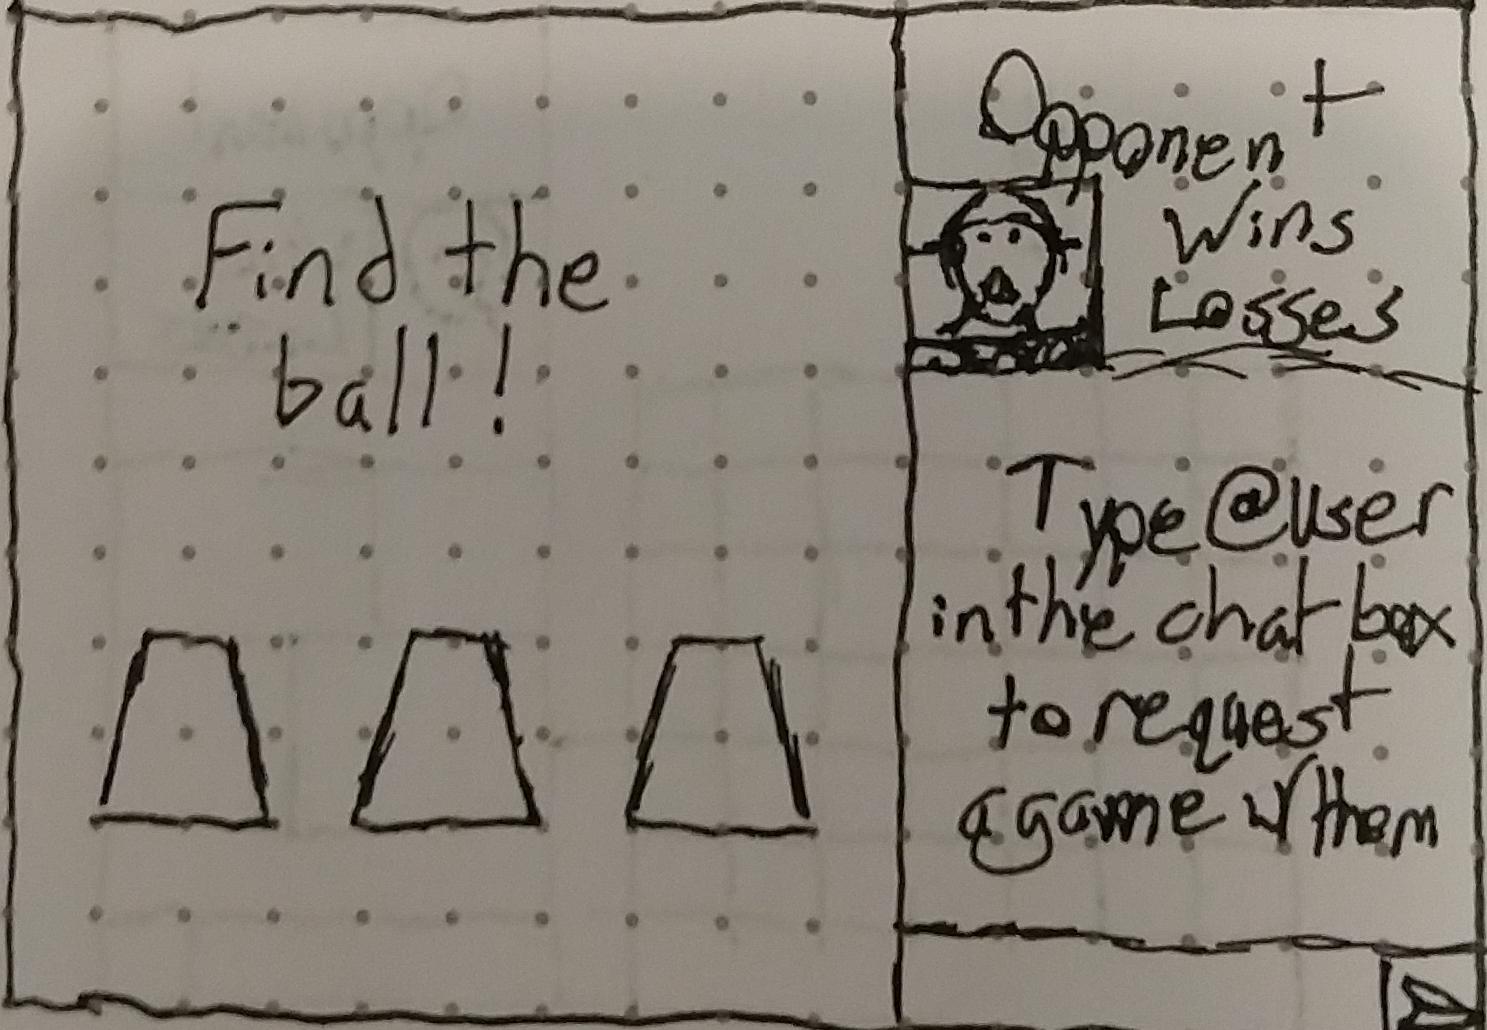 Find the
ball!
Opponent
Wins
Losses
Type @user
in the chat box
to request
a game w/ them